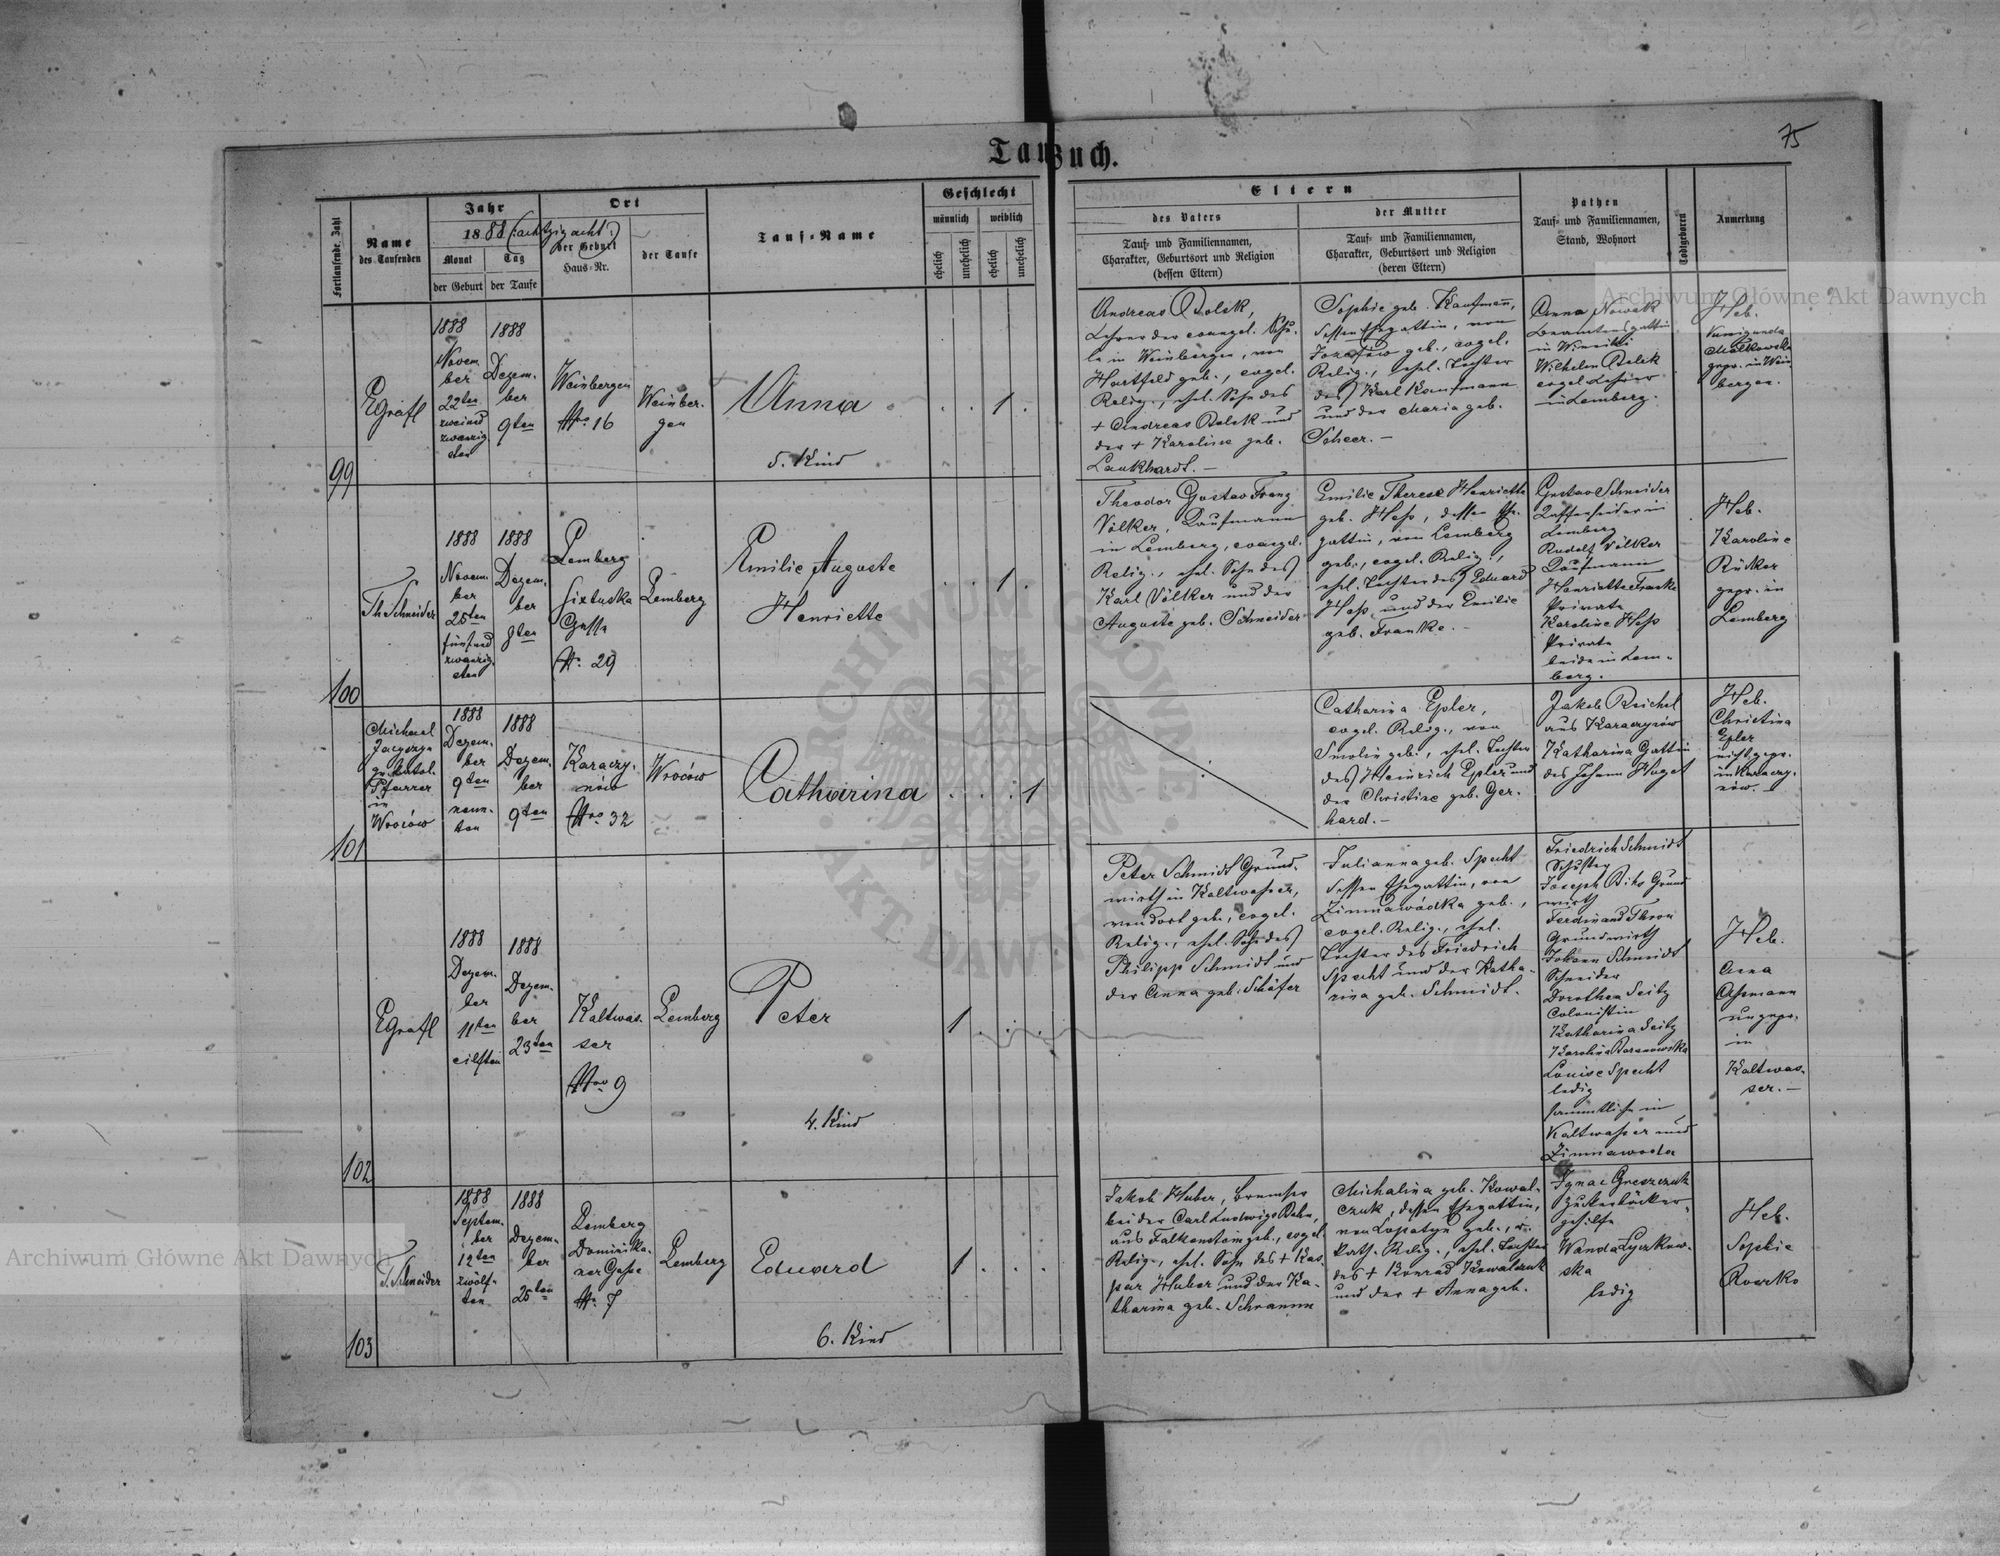 Taufbuch.
75
Fortlaufende Zahl
Name
des Taufenden
Jahr
1888 (:achtzig acht:)
Monat
Tag
der Geburt
der Taufe
Ort
der Geburt
Haus-Nr.
der Taufe
Tauf-Name
Geschlecht
männlich
weiblich
ehelich
unehelich
ehelich
unehelich
Eltern
des Vaters
Tauf- und Familiennamen,
Charakter, Geburtsort und Religion
(dessen Eltern)
der Mutter
Tauf- und Familiennamen,
Charakter, Geburtsort und Religion
(deren Eltern)
Pathen
Tauf- und Familiennamen,
Stand, Wohnort
Todtgeboren
Anmerkung
99
EGrafl
1888
Novem
ber
22ten
zweiund
zwanzig
sten
1888
Dezem-
ber
9ten
Weinbergen
Nro 16
Weinber-
gen
Anna
5. Kind
1
Andreas Bolek,
Lehrer der evangel. Schu-
le in Weinbergen, von
Hartfeld geb., evgel.
Relig., ehel. Sohn des
+ Andreas Bolek und
der + Karoline geb.
Lankhardt. —
Sophie geb. Kaufmann,
dessen Ehegattin, von
Josefow geb., evgel.
Relig., ehel. Tochter
des Karl Kaufmann
und der Maria geb.
Scheer. —
Anna Nowak
Beamtensgattin
in Winniki
Wilhelm Bolek
evgel. Lehrer
in Lemberg.
Heb.
Kunigunda
Malkowska
gepr. in Wein
bergen.
100
Th Schneider
1888
Novem-
ber
25ten
fünfund
zwanzig
sten
1888
Dezem-
ber
8ten
Lemberg
Sixtuska
Gasse
N. 29
Lemberg
Emilie Auguste
Henriette
1
Theodor Gustav Franz
Völker, Kaufmann
in Lemberg, evangel.
Relig., ehel. Sohn des
Karl Völker und der
Auguste geb. Schneider
Emilie Therese Henriette
geb. Hess, dessen Ehe-
gattin, von Lemberg
geb., evgel. Relig.,
ehel. Tochter des Eduard
Hess und der Emilie
geb. Franke. —
Gustav Schneider
Kaffeesieder in
Lemberg
Rudolf Völker
Kaufmann
Henriette Franke
Private
Karoline Hess
Private
beide in Lem-
berg.
Heb.
Karoline
Rücker
gepr. in
Lemberg
101
Michael
gr. kathol.
Pfarrer
in
Wrocow
1888
Dezem-
ber
9ten
neun-
ten
1888
Dezem-
ber
9ten
Karaczy-
nów
Nro 32
Wrocow
Catharina
1
Catharina Epler,
evgel. Relig., von
Smolin geb., ehel. Tochter
des Heinrich Epler und
der Christine geb. Ger-
hard. —
Jakob Reichel
aus Karaczynów
Katharina Gattin
des Johann Huget
Heb.
Christina
Epler
nicht gepr.
in Karaczy-
nów.
102
EGrafl
1888
Dezem-
ber
11ten
eilften
1888
Dezem-
ber
23ten
Kaltwas-
ser
Nro 9
Lemberg
Peter
4. Kind
1
Peter Schmidt Grund-
wirth in Kaltwasser,
von dort geb., evgel.
Relig., ehel. Sohn des
Philipp Schmidt und
der Anna geb. Schäfer
Julianna geb. Specht
dessen Ehegattin, von
Zimnawódka geb.,
evgel. Relig., ehel.
Tochter des Friedrich
Specht und der Katha-
rina geb. Schmidt.
Friedrich Schmidt
Schuster
Joseph Grund
wirth
Ferdinand Thron
Grundwirth
Johann Schmidt
Schneider
Dorothea Seitz
Colonistin
Katharina Seitz
Karolina Baranowska
Louise Specht
ledig
sämmtliche in
Kaltwasser und
Zimnawoda
Heb.
Anna
Assmann
ungepr.
in
Kaltwas-
ser. —
103
T. Schneider
1888
Septem-
ber
12ten
zwölf-
ten
1888
Dezem-
ber
25ten
Lemberg
Dominika-
ner Gasse
N. 7
Lemberg
Eduard
6. Kind
1
Jakob Huber, Bremser
bei der Carl Ludwigs Bahn,
aus Falkenstein geb., evgel
Relig., ehel. Sohn des + Kas-
par Huber und der Ka-
tharina geb. Schramm
Michalina geb. Kowal-
czuk, dessen Ehegattin,
von Lopatyn geb., r.
kath. Relig., ehel. Tochter
des + Konrad Kowalczuk
und der + Anna geb.
Ignac Greszczuk
Zuckerbäcker-
gehilfe
Wanda Lyczkow-
ska
ledig
Heb.
Sophie
Roszko
Archiwum Główne Akt Dawnych
Archiwum Główne Akt Dawnych
ARCHIWUM GŁÓWNE
AKT DAWNYCH